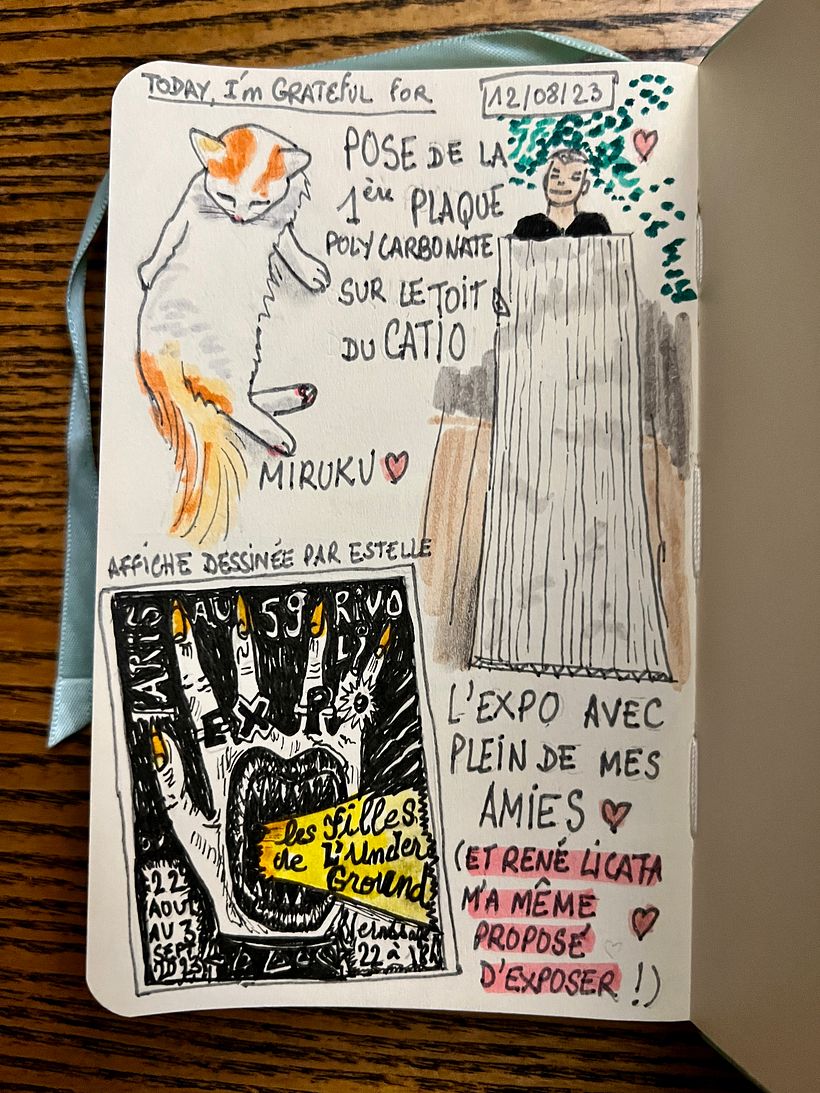 TODAY, I'm GRATEFUL FOR
12/08/23
POSE DE LA
1ère PLAQUE
POLYCARBONATE
SUR LE TOIT
DU CATIO
MIRUKU
AFFICHE DESSINÉE PAR ESTELLE
PARIS AU 59 RIVOLI
EXPO
les Filles
de L'Under
Ground
22
AOUT
AU 3
SEPT
2023
Vernissage
22 à 18H
L'EXPO AVEC
PLEIN DE MES
AMIES
(ET RENÉ LICATA
M'A MÊME
PROPOSÉ
D'EXPOSER !)